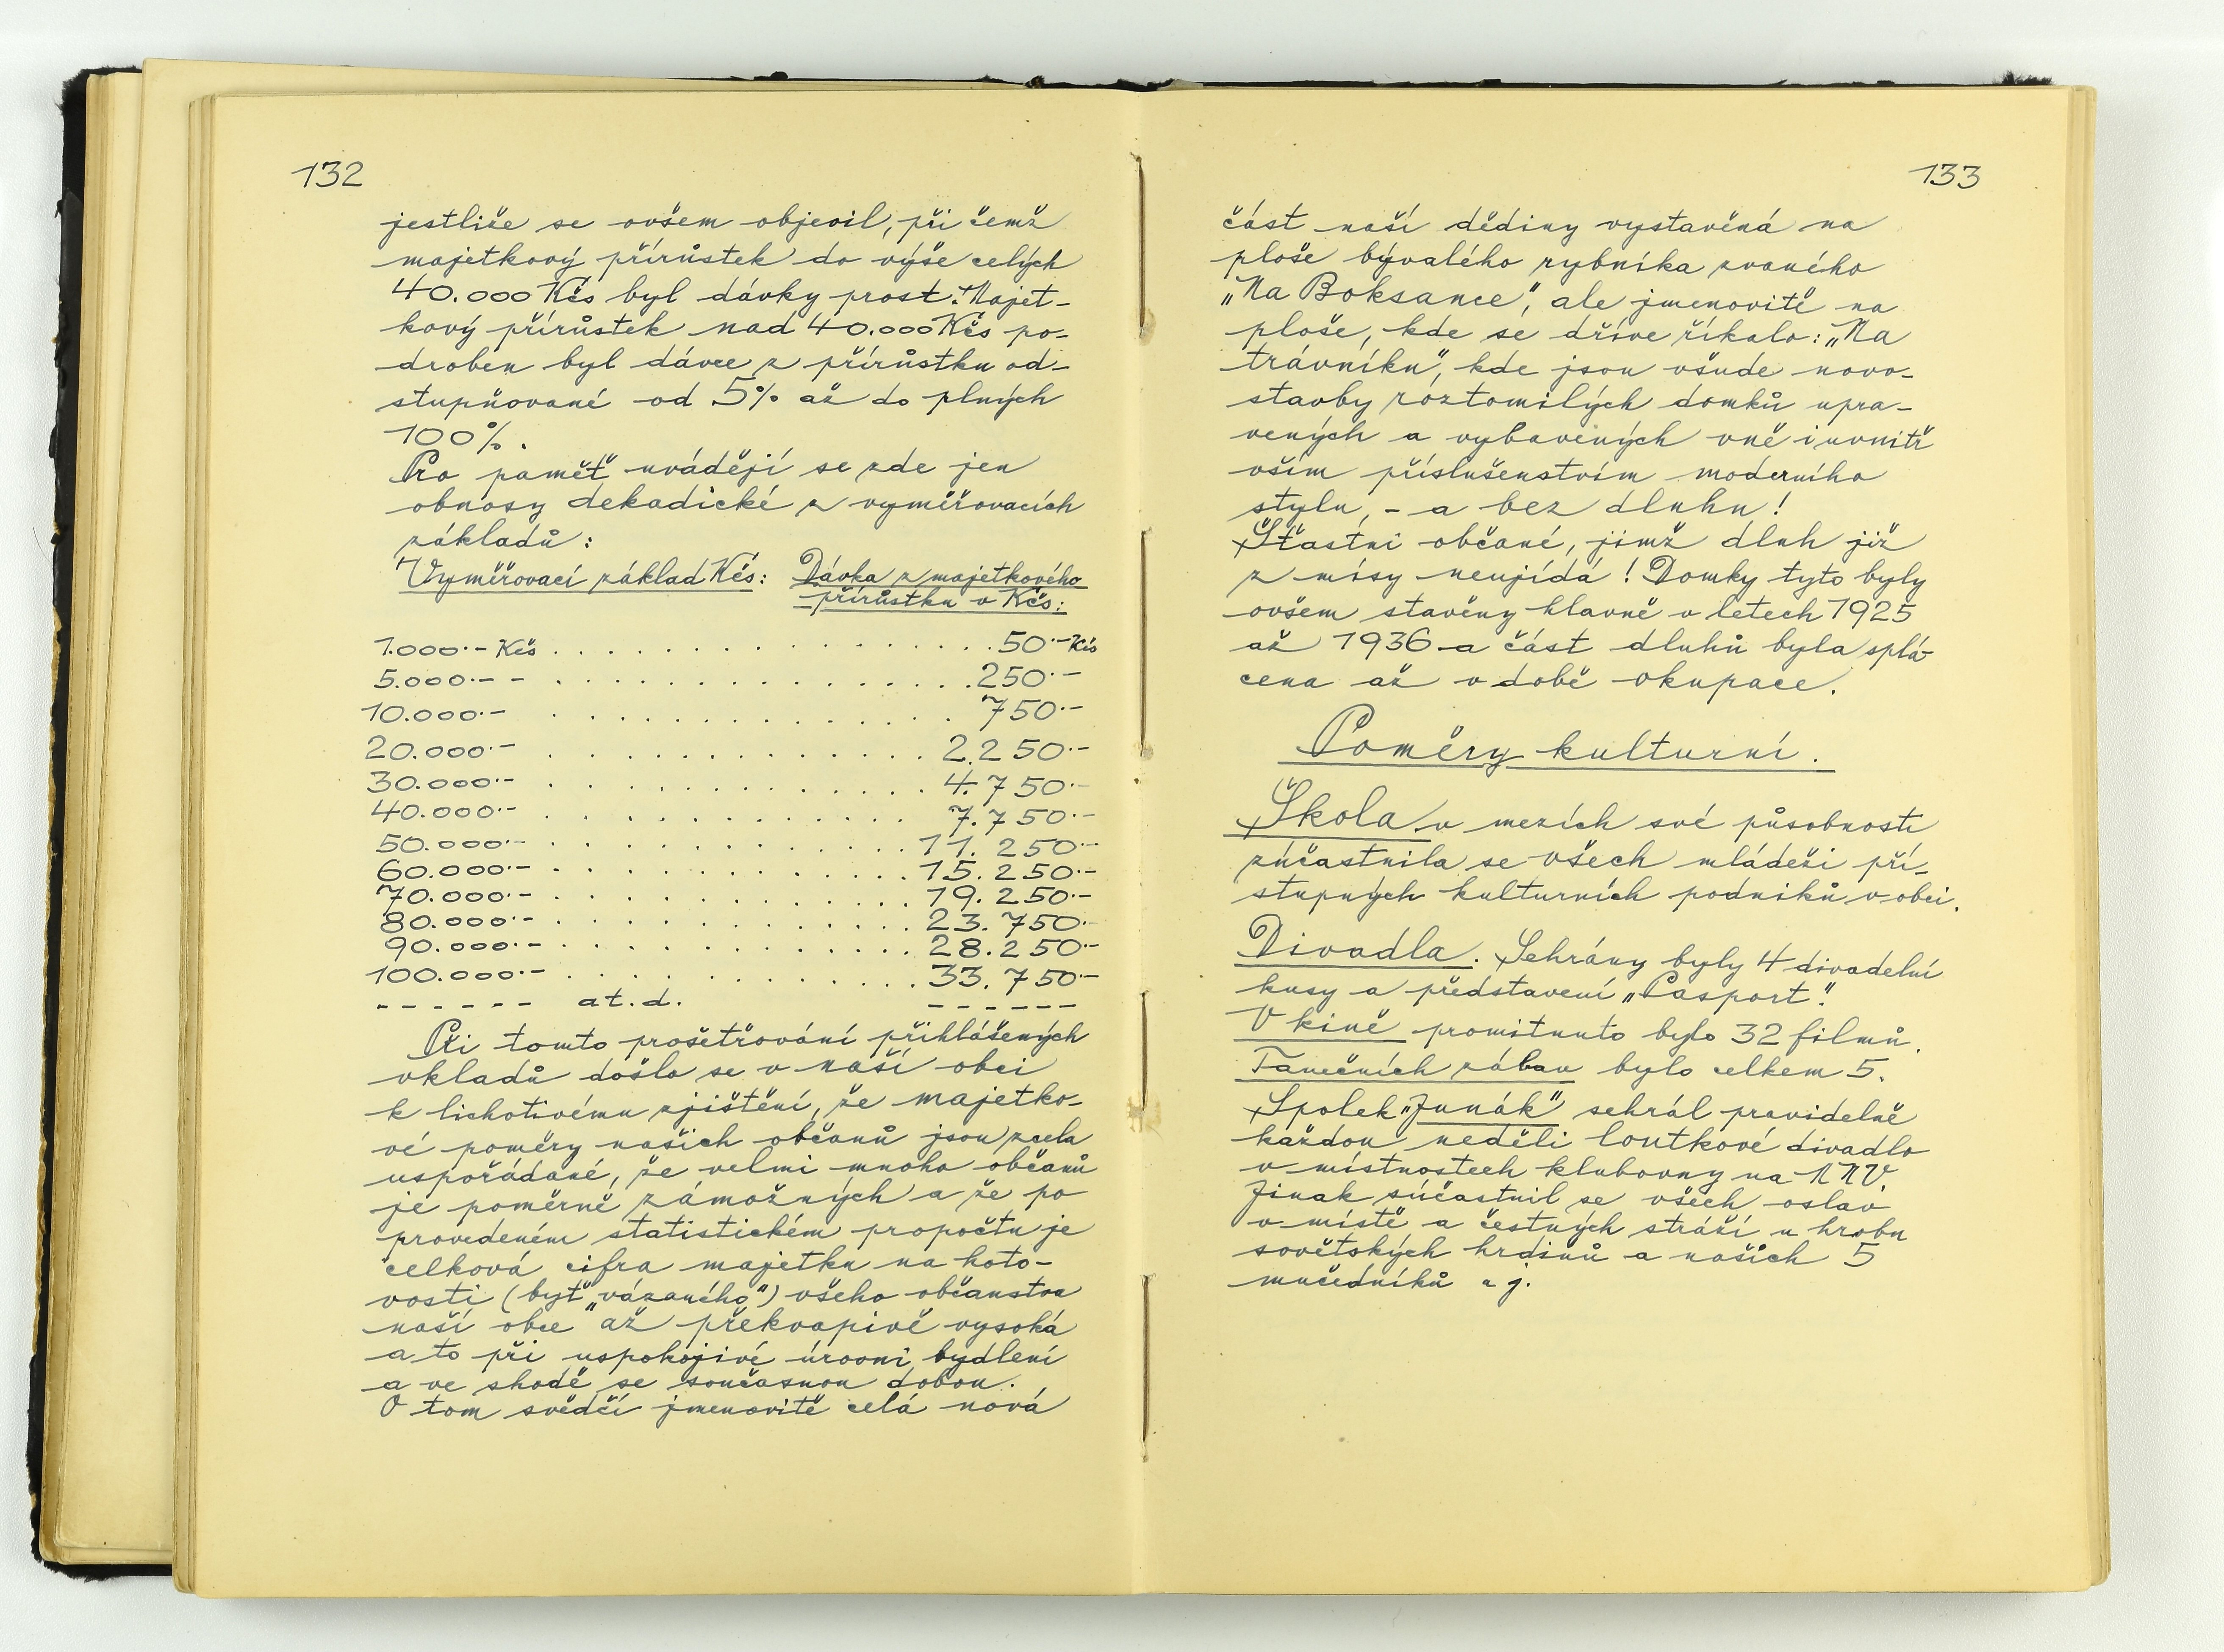 132
jestliže se ovšem objevil, při čemž
majetkový přírůstek do výše celých
40.000 Kčs byl dávky prost. Majet-
kový přírůstek nad 40.000 Kčs po-
droben byl dávce z přírůstku od-
stupňované od 5% až do plných
100%.
Pro paměť uvádějí se zde jen
obnosy dekadické z vyměřovacích
základů:
Vyměřovací základ Kčs: Dávka z majetkového
přírůstku v Kčs:
1.000.- Kčs . . . . . . . . . . . . . . . . 50.- Kčs
5.000.- - . . . . . . . . . . . . . . . 250.-
10.000.- . . . . . . . . . . . . . . 750.-
20.000.- . . . . . . . . . . . . . 2.250.-
30.000.- . . . . . . . . . . . . . 4.750.-
40.000.- . . . . . . . . . . . . 7.750.-
50.000.- . . . . . . . . . . . . 11.250.-
60.000.- . . . . . . . . . . . . 15.250.-
70.000.- . . . . . . . . . . . . 19.250.-
80.000.- . . . . . . . . . . . . 23.750.-
90.000.- . . . . . . . . . . . . 28.250.-
100.000.- . . . . . . . . . . . . 33.750.-
- - - - - - at.d. - - - - - -
Při tomto prošetřování přihlášených
vkladů došlo se v naší obci
k lichotivému zjištění, že majetko-
vé poměry našich občanů jsou zcela
uspořádané, že velmi mnoho občanů
je poměrně zámožných a že po
provedeném statistickém propočtu je
celková cifra majetku na hoto-
vosti (byť „vázaného") všeho občanstva
naší obce až překvapivě vysoká
a to při uspokojivé úrovni bydlení
a ve shodě se současnou dobou.
O tom svědčí jmenovitě celá nová
133
část naší dědiny vystavěná na
ploše bývalého rybníka zvaného
„Na Boksance", ale jmenovitě na
ploše, kde se dříve říkalo: „Na
trávníku", kde jsou všude novo-
stavby roztomilých domků upra-
vených a vybavených vně i uvnitř
vším příslušenstvím moderního
stylu, - a bez dluhu!
Šťastní občané, jimž dluh již
z mísy neujídá! Domky tyto byly
ovšem stavěny hlavně v letech 1925
až 1936 a část dluhů byla splá-
cena až v době okupace.
Poměry kulturní.
Škola v mezích své působnosti
zúčastnila se všech mládeži pří-
stupných kulturních podniků v obci.
Divadla. Sehrány byly 4 divadelní
kusy a představení „Pasport".
V kině promítnuto bylo 32 filmů.
Tanečních zábav bylo celkem 5.
Spolek „Junák" sehrál pravidelně
každou neděli loutkové divadlo
v místnostech klubovny na NNV.
Jinak súčastnil se všech oslav
v místě a čestných stráží u hrobu
sovětských hrdinů a našich 5
mučedníků a j.